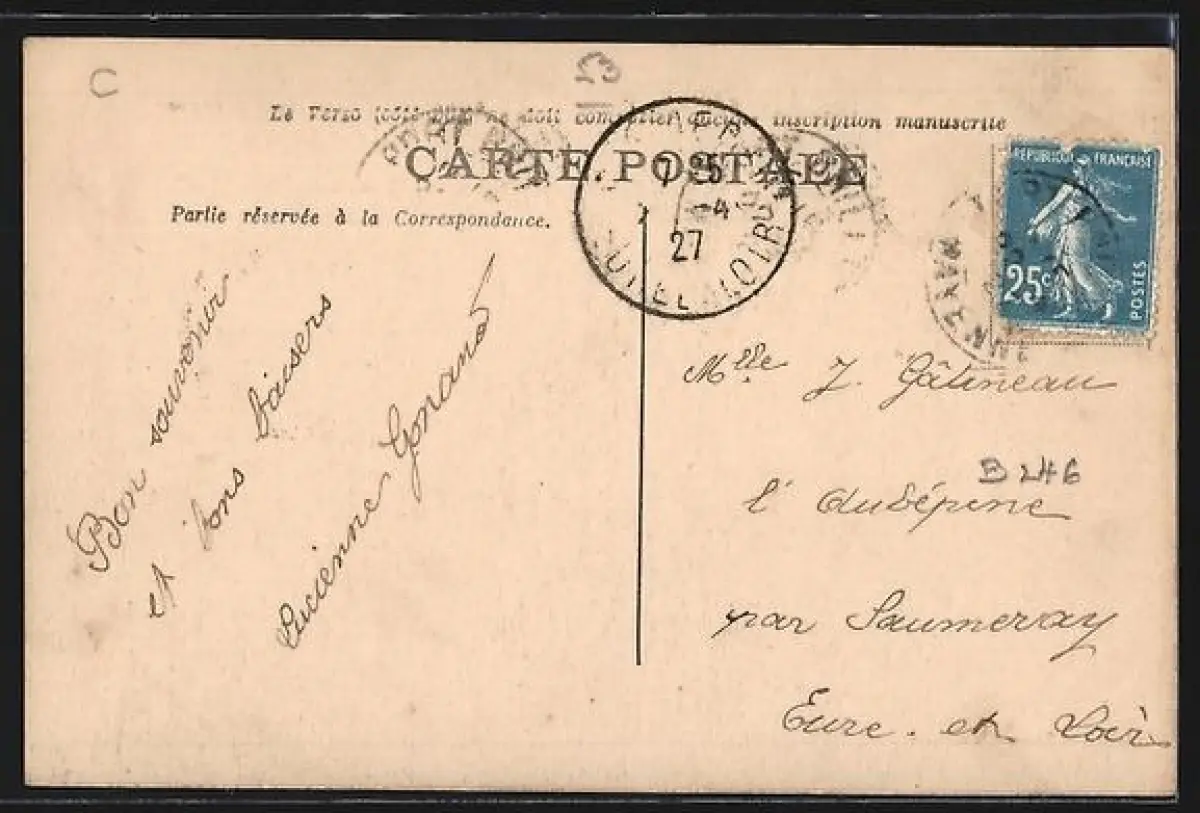 C
53
Le Verso (côté vue) ne doit comporter aucune inscription manuscrite
CARTE POSTALE
Partie réservée à la Correspondance.
7 25
-4
27
EURE & LOIR
REPUBLIQUE FRANÇAISE
25c
POSTES
MAYENNE
Bon souvenir
et bons baisers
Lucienne
Mlle J. Gâtineau
B 246
l'Aubépine
par Saumeray
Eure. et Loir